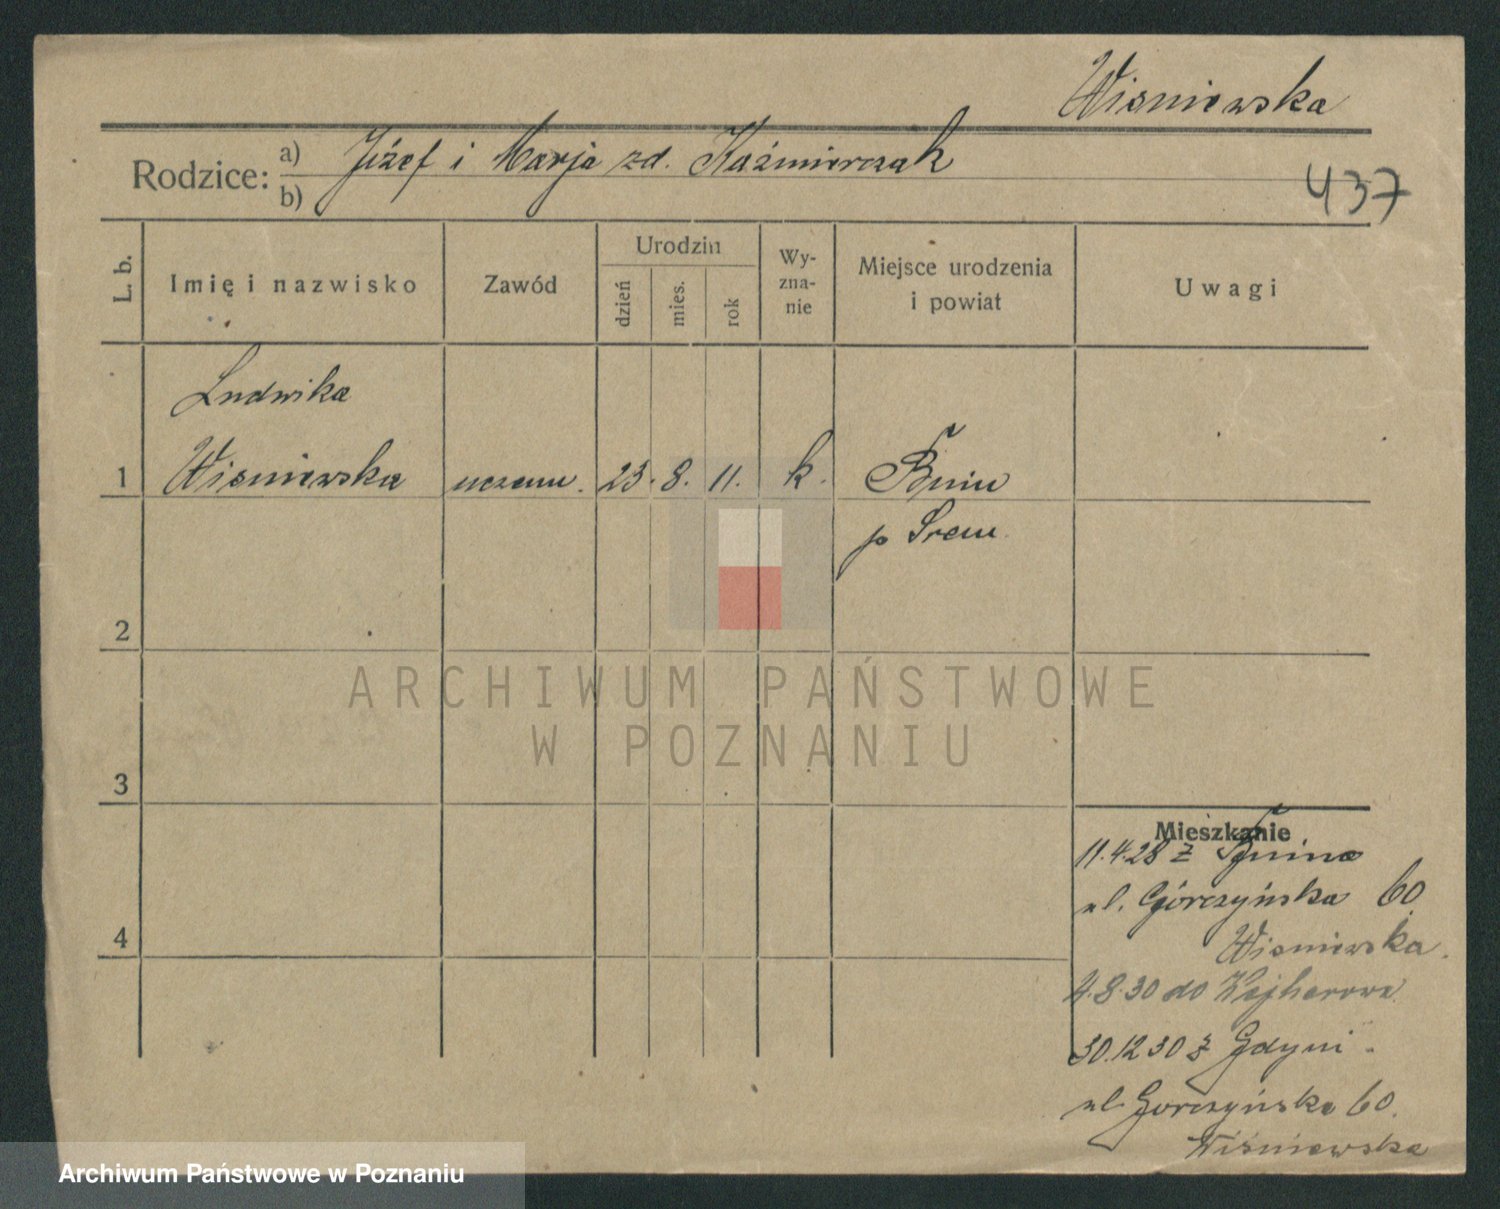 Wisniewska
Rodzice: a) Józef i Marja zd. Kaźmierczak
b)
437
L. b.
Imię i nazwisko
Zawód
Urodzin
dzień
mies.
rok
Wy-
zna-
nie
Miejsce urodzenia
i powiat
Uwagi
Ludwika
1 Wisniewska uczenn. 23. 8. 11. k. Bnin
p Śrem
2
3
4
Mieszkanie
11.4.28 z Bnina
ul. Górczyńska 60
Wisniewska.
4.8.30 do Wejherowa
30.12 30 z Gdyni.
ul Gorczyńska 60.
Wiśniewska
ARCHIWUM PAŃSTWOWE
W POZNANIU
Archiwum Państwowe w Poznaniu